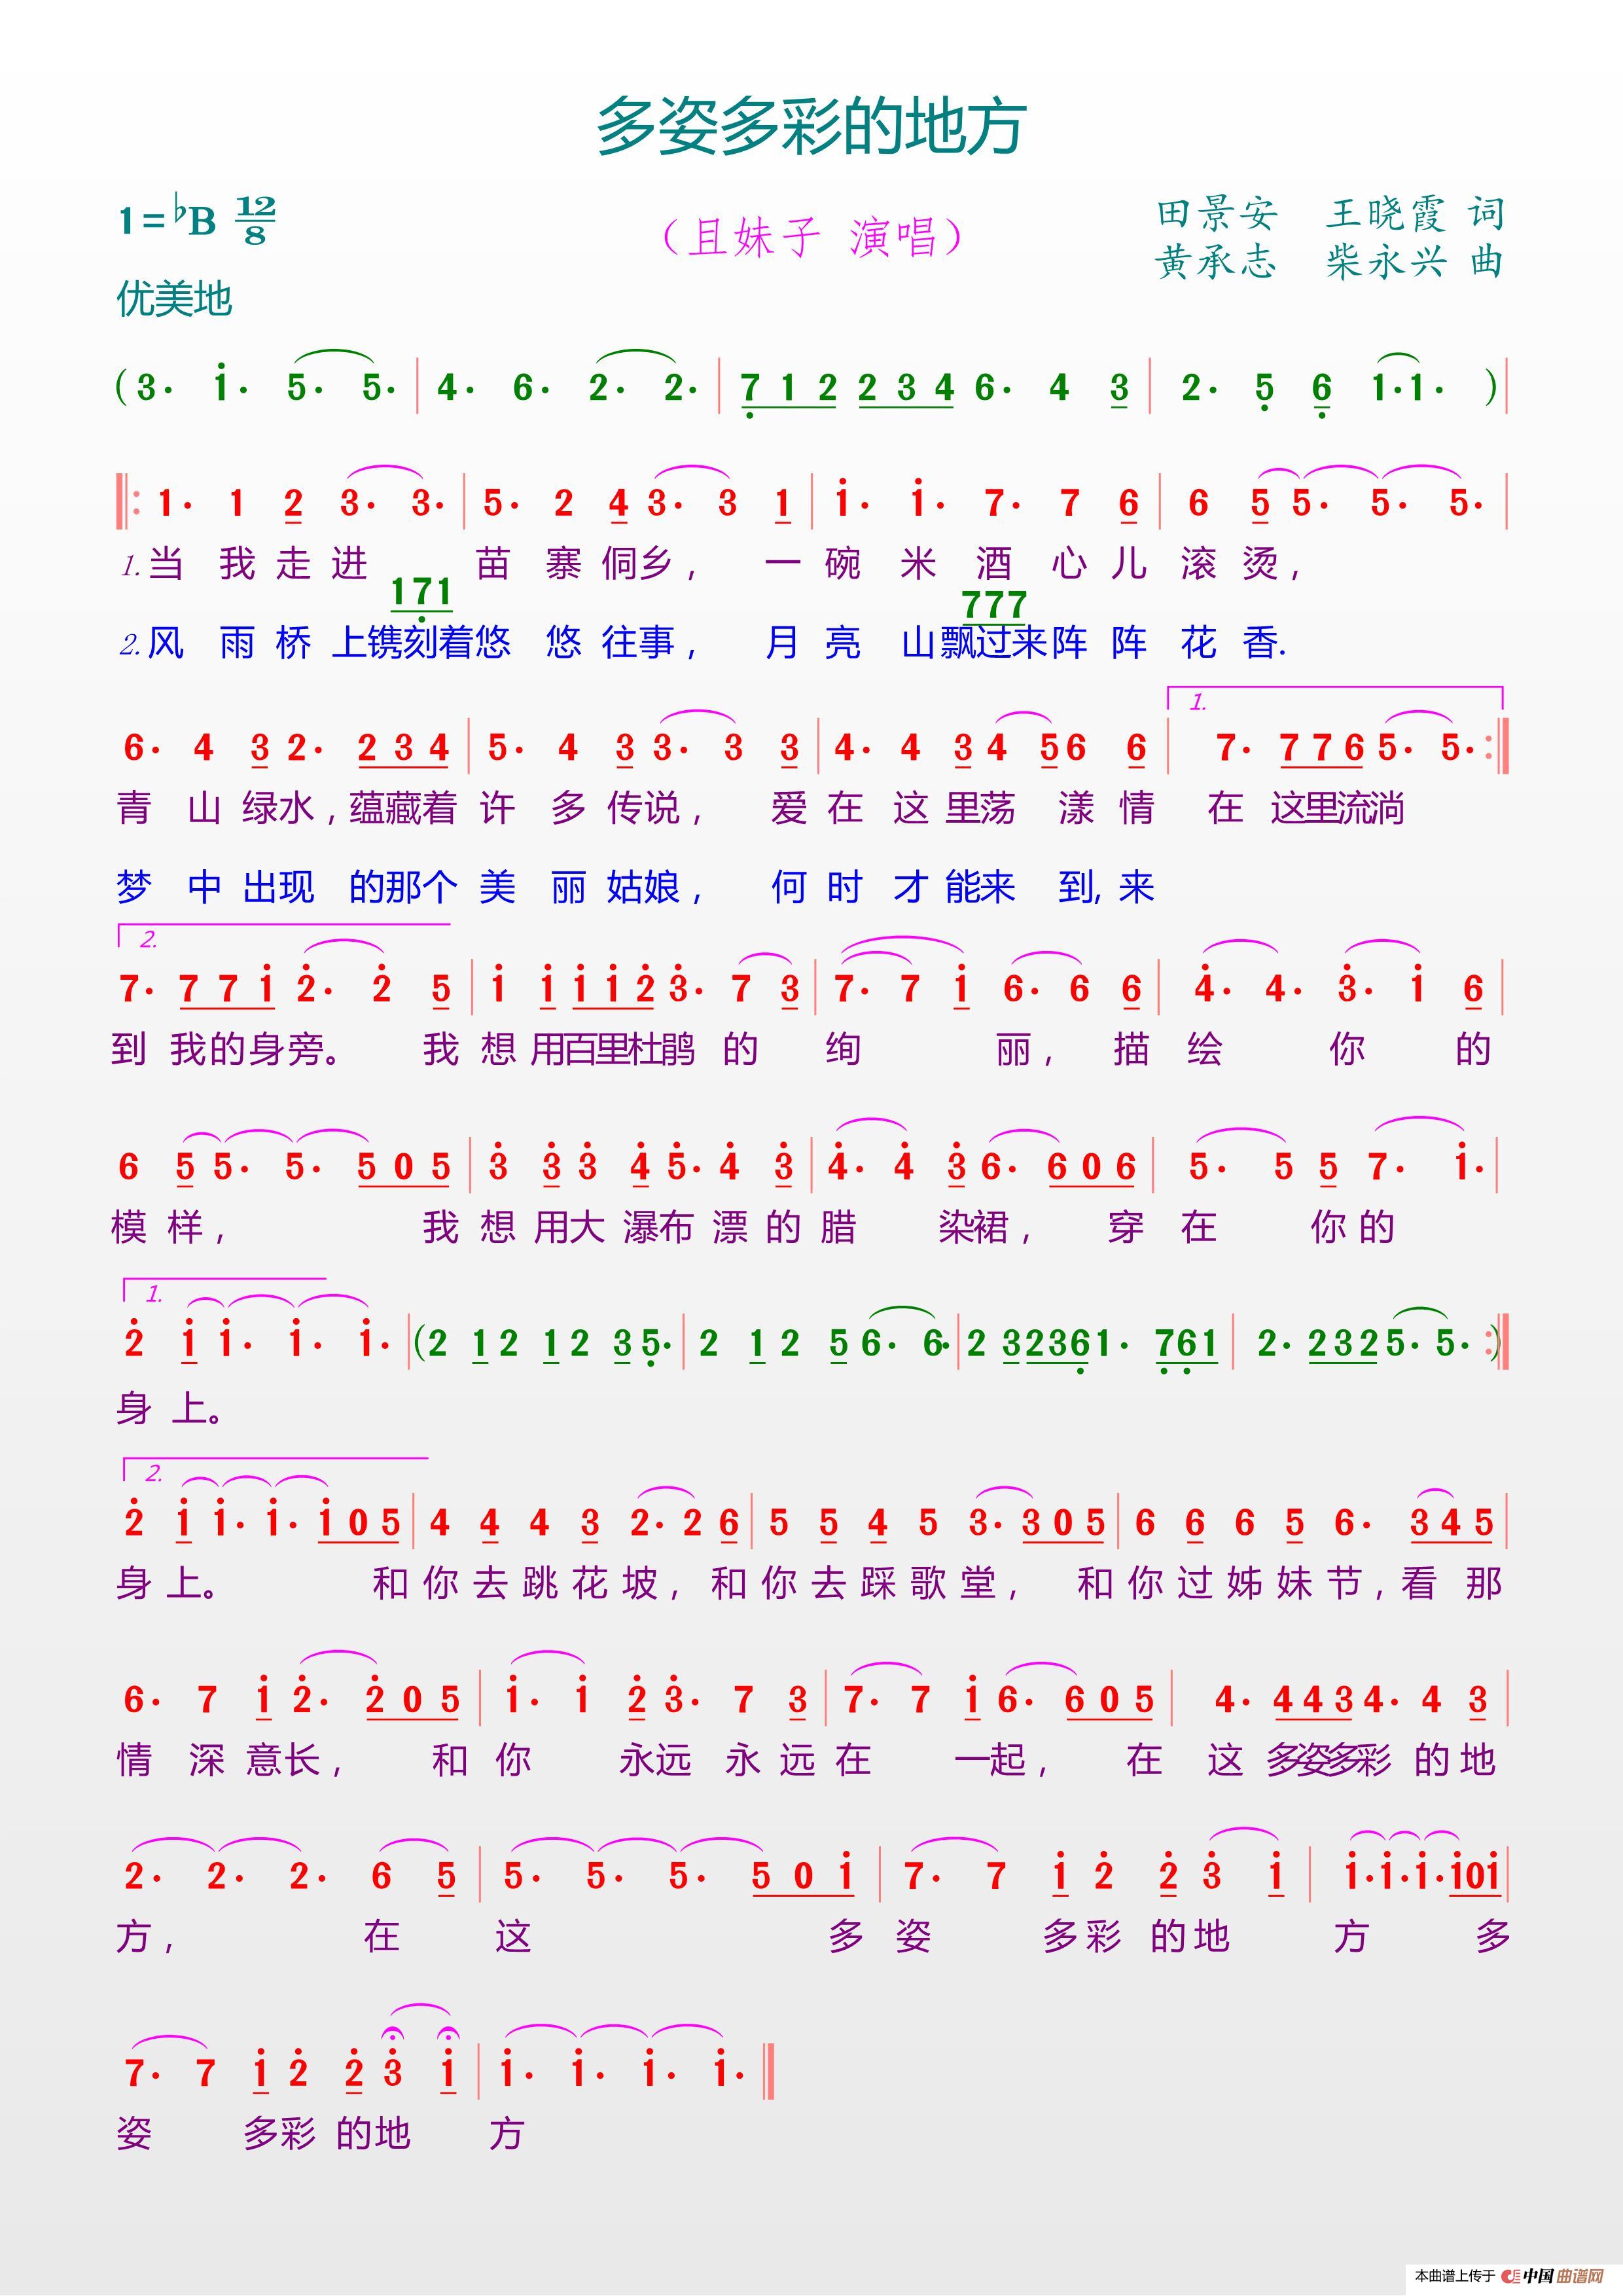 多姿多彩的地方
1=♭B 12/8
（且妹子 演唱）
田景安 王晓霞 词
黄承志 柴永兴 曲
优美地
(3· i· 5· 5· | 4· 6· 2· 2· | 7 1 2 2 3 4 6· 4 3 | 2· 5 6 1·1· )
1· 1 2 3· 3· | 5· 2 4 3· 3 1 | i· i· 7· 7 6 | 6 5 5· 5· 5· |
1.当 我 走 进 苗 寨 侗乡， 一 碗 米 酒 心 儿 滚 烫，
171 777
2.风 雨 桥 上镌刻着悠 悠 往事， 月 亮 山飘过来阵 阵 花 香.
1.
6· 4 3 2· 2 3 4 | 5· 4 3 3· 3 3 | 4· 4 3 4 5 6 6 | 7· 7 7 6 5· 5· :|
青 山 绿水，蕴藏着 许 多 传说， 爱 在 这 里荡 漾 情 在 这里流淌
梦 中 出现 的那个 美 丽 姑娘， 何 时 才 能来 到, 来
2.
7· 7 7 i 2· 2 5 | i i i i 2 3· 7 3 | 7· 7 i 6· 6 6 | 4· 4· 3· i 6 |
到 我的身旁。 我 想 用百里杜鹃 的 绚 丽， 描 绘 你 的
6 5 5· 5· 5 0 5 | 3 3 3 4 5· 4 3 | 4· 4 3 6· 6 0 6 | 5· 5 5 7· i· |
模 样， 我 想 用大 瀑布 漂 的 腊 染裙， 穿 在 你 的
1.
2 i i· i· i· | (2 1 2 1 2 3 5· | 2 1 2 5 6· 6· | 2 3 2 3 6 1· 7 6 1 | 2· 2 3 2 5· 5· ) :|
身 上。
2.
2 i i· i· i 0 5 | 4 4 4 3 2· 2 6 | 5 5 4 5 3· 3 0 5 | 6 6 6 5 6· 3 4 5 |
身 上。 和 你 去 跳 花 坡，和 你 去 踩 歌 堂， 和 你 过 姊 妹 节，看 那
6· 7 i 2· 2 0 5 | i· i 2 3· 7 3 | 7· 7 i 6· 6 0 5 | 4· 4 4 3 4· 4 3 |
情 深 意长， 和 你 永远 永 远 在 一起， 在 这 多姿多彩 的 地
2· 2· 2· 6 5 | 5· 5· 5· 5 0 i | 7· 7 i 2 2 3 i | i·i·i·i0i |
方， 在 这 多 姿 多彩 的地 方 多
7· 7 i 2 2 3 i | i· i· i· i· ‖
姿 多彩 的地 方
本曲谱上传于 中国曲谱网